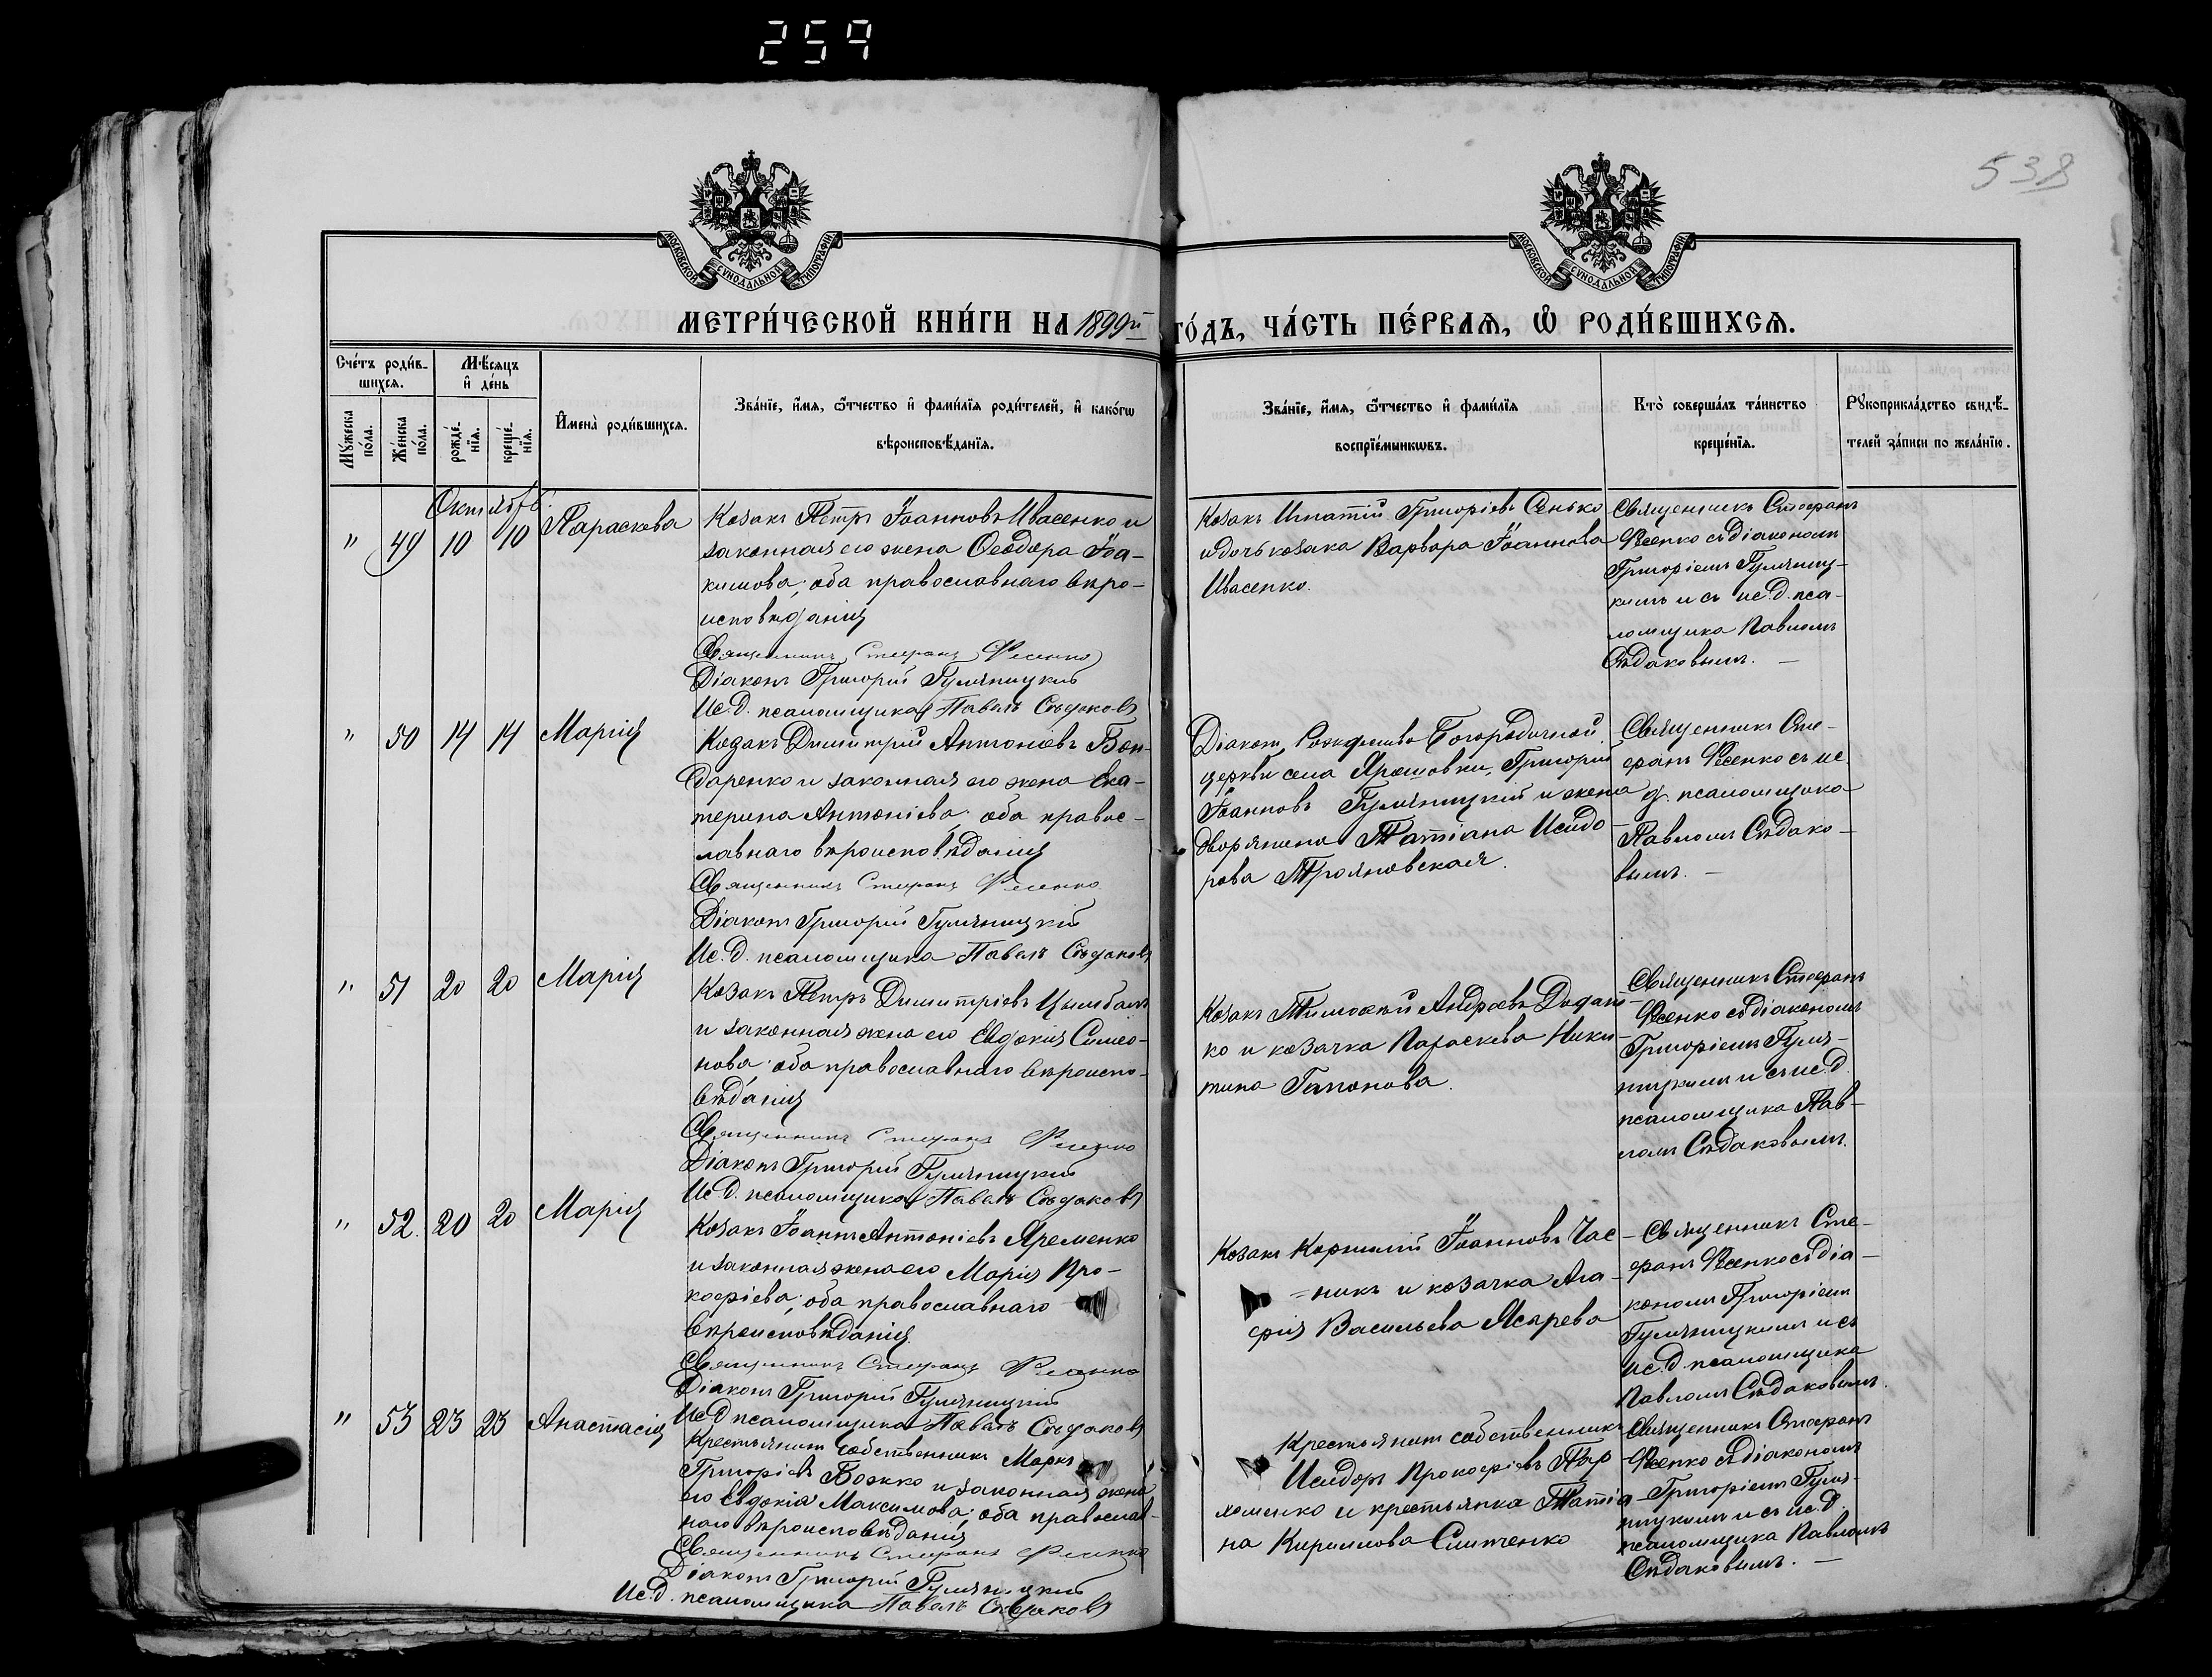 259
538
МОСКОВСКОЙ СѴНОДАЛЬНОЙ ТИПОГРАФІИ
МОСКОВСКОЙ СѴНОДАЛЬНОЙ ТИПОГРАФІИ
МЕТРИ́ЧЕСКОЙ КНИ́ГИ НА 1899й ГО́ДЪ, ЧА́СТЬ ПЕ́РВАЯ, Ѡ РОДИ́ВШИХСЯ.
Сче́тъ роди́в-
шихся.
Мꙋ́жеска по́ла.
Же́нска по́ла.
Мѣ́сяцъ и де́нь
рожде́-
нїя.
креще́-
нїя.
Имена̀ роди́вшихся.
Зва́нїе, и́мя, ѻ҆́тчество и фами́лїя роди́телей, и како́гѡ
вѣроисповѣ́данїя.
Зва́нїе, и́мя, ѻ҆́тчество и фами́лїя
воспрїе́мникѡвъ.
Кто̀ соверша́лъ та́инство
креще́нїя.
Рꙋкоприкла́дство свидѣ́-
телей за́писи по жела́нїю.
Октябрь
" 49 10 10 Параскева
Козакъ Петръ Іоанновъ Ивасенко и
законная его жена Ѳеодора Іоа-
кимова, оба православнаго вѣро-
исповѣданія
Священникъ Стефанъ Фесенко
Діаконъ Григорій Гумяницкій
Ис.д. псаломщика Павелъ Сѣдаковъ
Козакъ Игнатій Григоріевъ Сенько
и дочь козака Варвара Іоаннова
Ивасенко.
Священникъ Стефанъ
Фесенко съ діакономъ
Григоріемъ Гумяниц-
кимъ и съ ис.д. пса-
ломщика Павломъ
Сѣдаковымъ. —
" 50 14 14 Марія
Козакъ Димитрій Антоніевъ Бон-
даренко и законная его жена Ека-
терина Антоніева, оба правос-
лавнаго вѣроисповѣданія
Священникъ Стефанъ Фесенко
Діаконъ Григорій Гумяницкій
Ис.д. псаломщика Павелъ Сѣдаковъ
Діаконъ Рождество Богородичной
церкви села Ярошовки, Григорій
Іоанновъ Гумяницкій и жена
дворянина Татіана Исидо-
рова Трояновская.
Священникъ Сте-
фанъ Фесенко съ ис.
д. псаломщика
Павломъ Сѣдако-
вымъ. —
" 51 20 20 Марія
Козакъ Петръ Димитріевъ Цымбалъ
и законная жена его Евдокія Симео-
нова, оба православнаго вѣроиспо-
вѣданія
Священникъ Стефанъ Фесенко
Діаконъ Григорій Гумяницкій
Ис.д. псаломщика Павелъ Сѣдаковъ
Козакъ Тимоѳей Андреевъ
ко и козачка Параскева Ники-
тина Гапонова.
Священникъ Стефанъ
Фесенко съ діакономъ
Григоріемъ Гумя-
ницкимъ и съ ис.д.
псаломщика Пав-
ломъ Сѣдаковымъ.
" 52. 20 20 Марія
Козакъ Іоаннъ Антоніевъ Яременко
и законная жена его Марія Про-
кофіева, оба православнаго
вѣроисповѣданія
Священникъ Стефанъ Фесенко
Діаконъ Григорій Гумяницкій
Ис.д. псаломщика Павелъ Сѣдаковъ
Козакъ Корнилій Іоанновъ Час-
=никъ и козачка Ага-
фія Васильева
Священникъ Сте-
фанъ Фесенко съ діа-
кономъ Григоріемъ
Гумяницкимъ и съ
ис.д. псаломщика
Павломъ Сѣдаковымъ.
" 53 23 23 Анастасія
Крестьянинъ собственникъ Маркъ
Григоріевъ Божко и законная жена
его Евдокія Максимова, оба православ-
наго вѣроисповѣданія
Священникъ Стефанъ Фесенко
Діаконъ Григорій Гумяницкій
Ис.д. псаломщика Павелъ Сѣдаковъ
Крестьянинъ собственникъ
Исидоръ Прокофіевъ Пар-
хоменко и крестьянка Татіа-
на Кириллова
Священникъ Стефанъ
Фесенко съ діакономъ
Григоріемъ Гумя-
ницкимъ и съ ис.д.
псаломщика Павломъ
Сѣдаковымъ. —